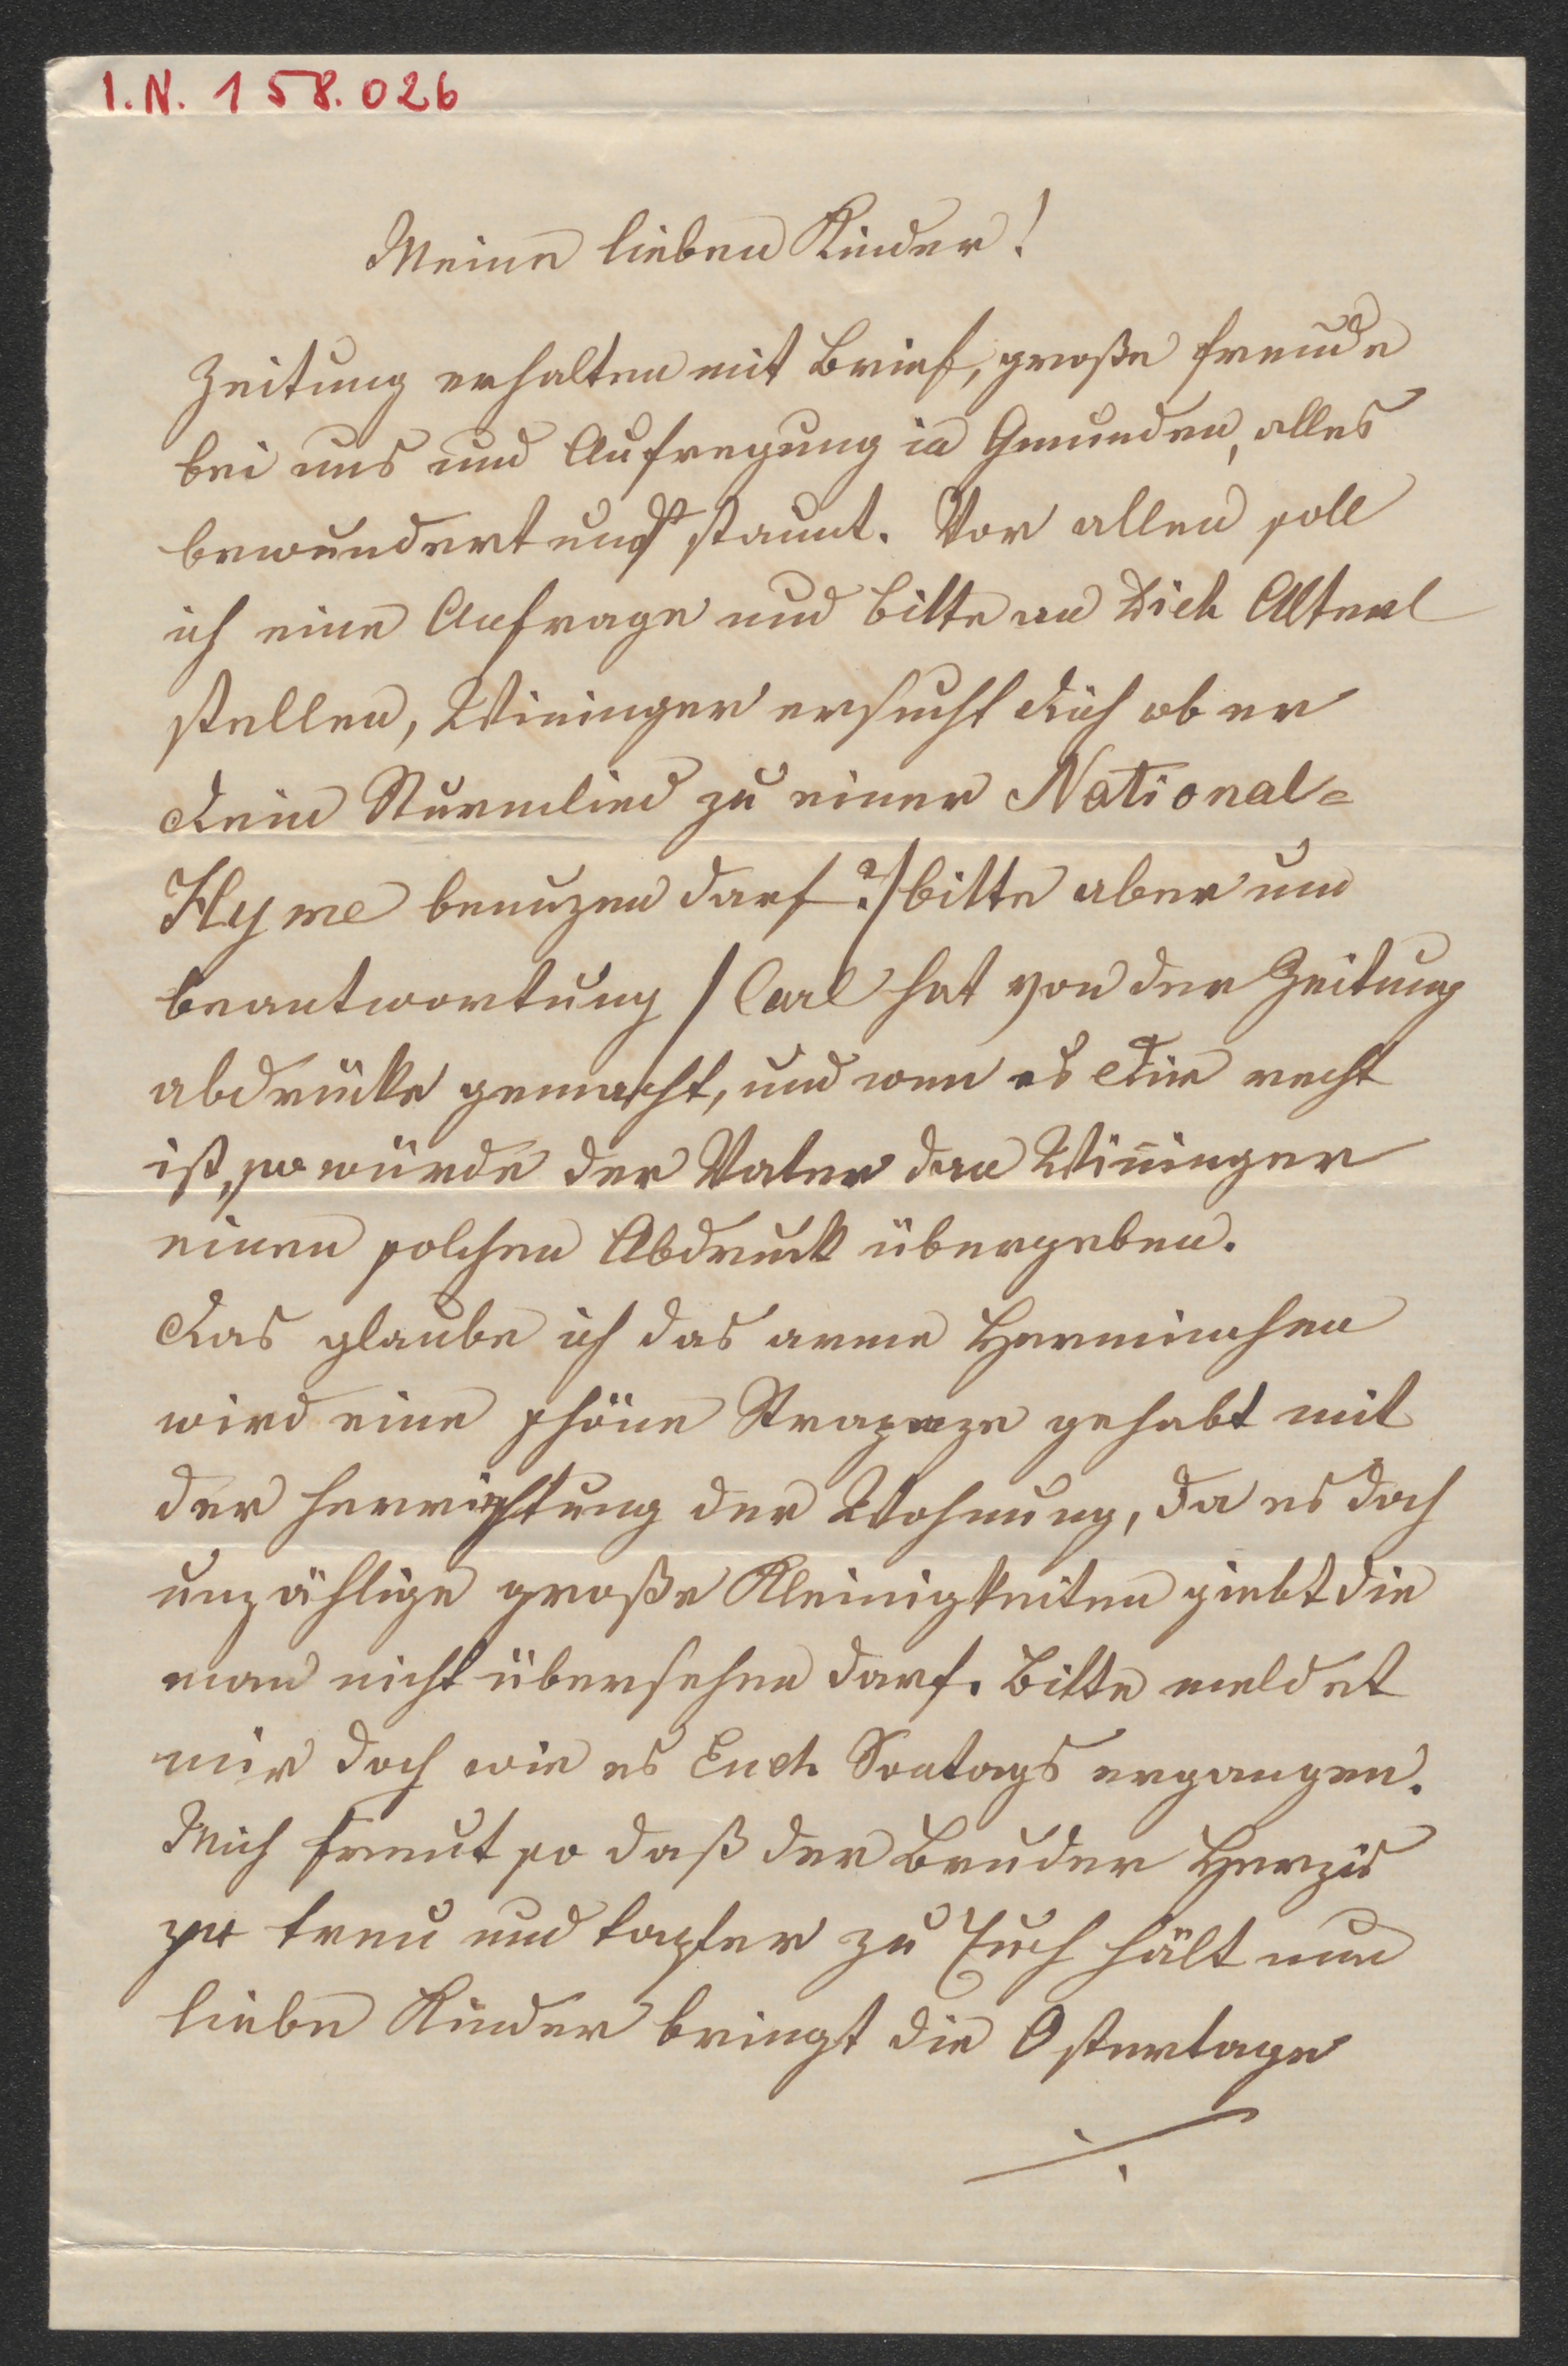 I.N. 158.026
Meine lieben Kinder!
Zeitung erhalten mit Brief, große Freude
bei uns und Aufregung in Gmunden, alles
bewundert und staunt. Vor allen soll
ich eine Anfrage und bitte an Dich Alterl
stellen, Wininger ersucht dich ob er
dein Sturmlied zu einer National-
Hyme benuzen darf ? / bitte aber um
beantwortung / Carl hat von der Zeitung
abdrücke gemacht, und wen es dir recht
ist, so würde der Vater dan Wininger
einen solchen Abdruck übergeben.
Das glaube ich das arme Herminchen
wird eine schöne Strapaze gehabt mit
der herrichtung der Wohnung, da es doch
unzählige große Kleinigkeiten giebt die
man nicht übersehen darf. Bitte meldet
mir doch wie es Euch Sontags ergangen.
Mich freut so daß der Bruder Herzis
so treu und tapfer zu Euch hält nun
liebe Kinder bringt die Ostertage
./.